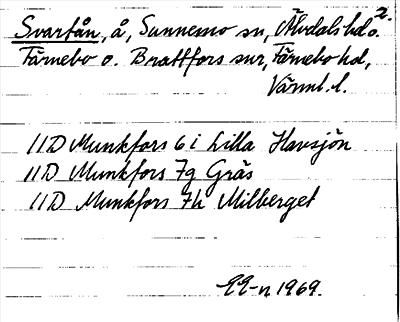 2.
Svartån, å, Sunnemo sn, Älvdals hd o.
Färnebo o. Brattfors snr, Färnebo hd,
Värml. l.
11D Munkfors 6i Lilla Havsjön
11D Munkfors 7g Gräs
11D Munkfors 7h Milberget
1969.